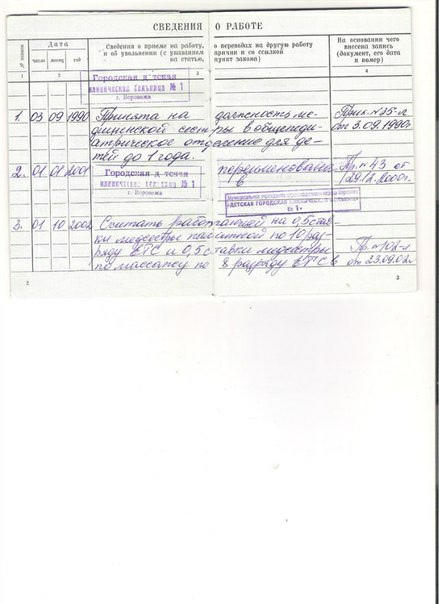 СВЕДЕНИЯ О РАБОТЕ
№ записи
Дата
число
месяц
год
Сведения о приеме на работу, о переводах на другую работу
и об увольнении (с указанием причин и со ссылкой
на статью, пункт закона)
На основании чего
внесена запись
(документ, его дата
и номер)
1 2 3 4
Городская детская
клиническая больница № 1
г. Воронежа
1. 03 09 1990 Принята на должность ме-
дицинской сестры в общепеди-
атрическое отделение для де-
тей до 1 года.
от 3.09.1990г
2. 01 01 2001
Городская детская
клиническая больница № 1
г. Воронежа
переименована
в
Пр. №43 от
29.12.2000г.
ДЕТСКАЯ ГОРОДСКАЯ
№ 1
3. 01 10 2002 Считать работающей на 0,5 став-
ки медсестры палатной по 10 раз-
ряду ЕТС и 0,5 ставки медсестры
по массажу по 8 разряду ЕТС
Пр. №102-л
от 23.09.02г
2 3